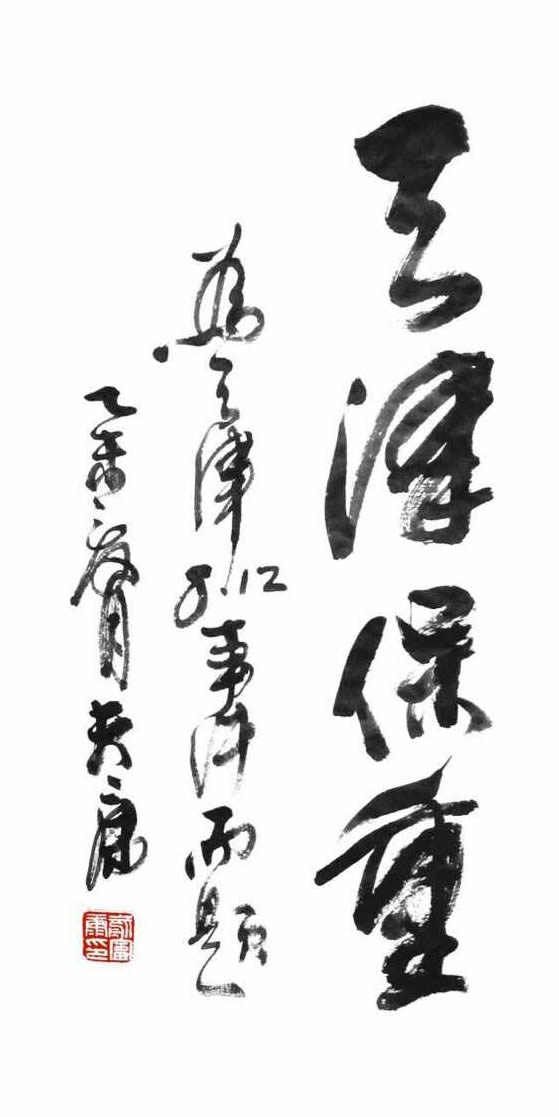 天津保重
為天津8.12事件而題
乙未月